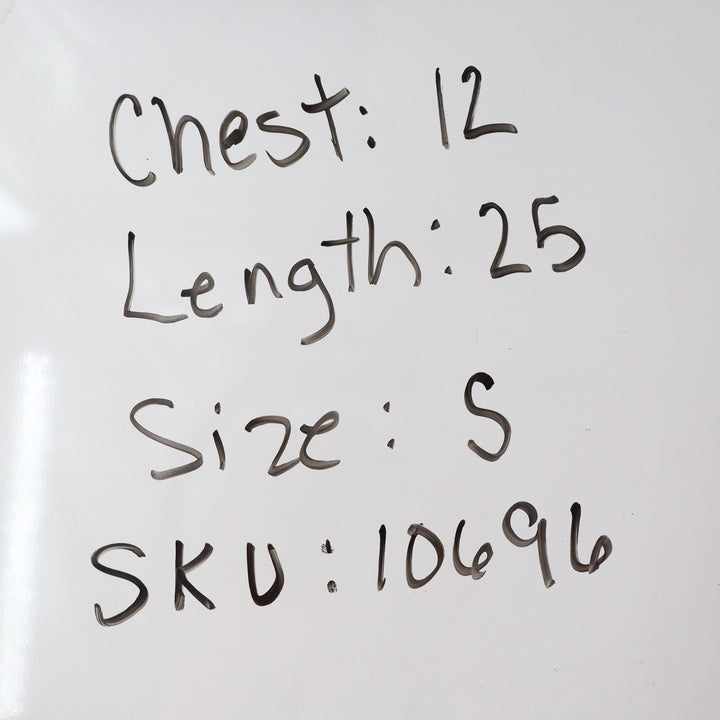 Chest: 12
Length: 25
Size: S
SKU: 10696